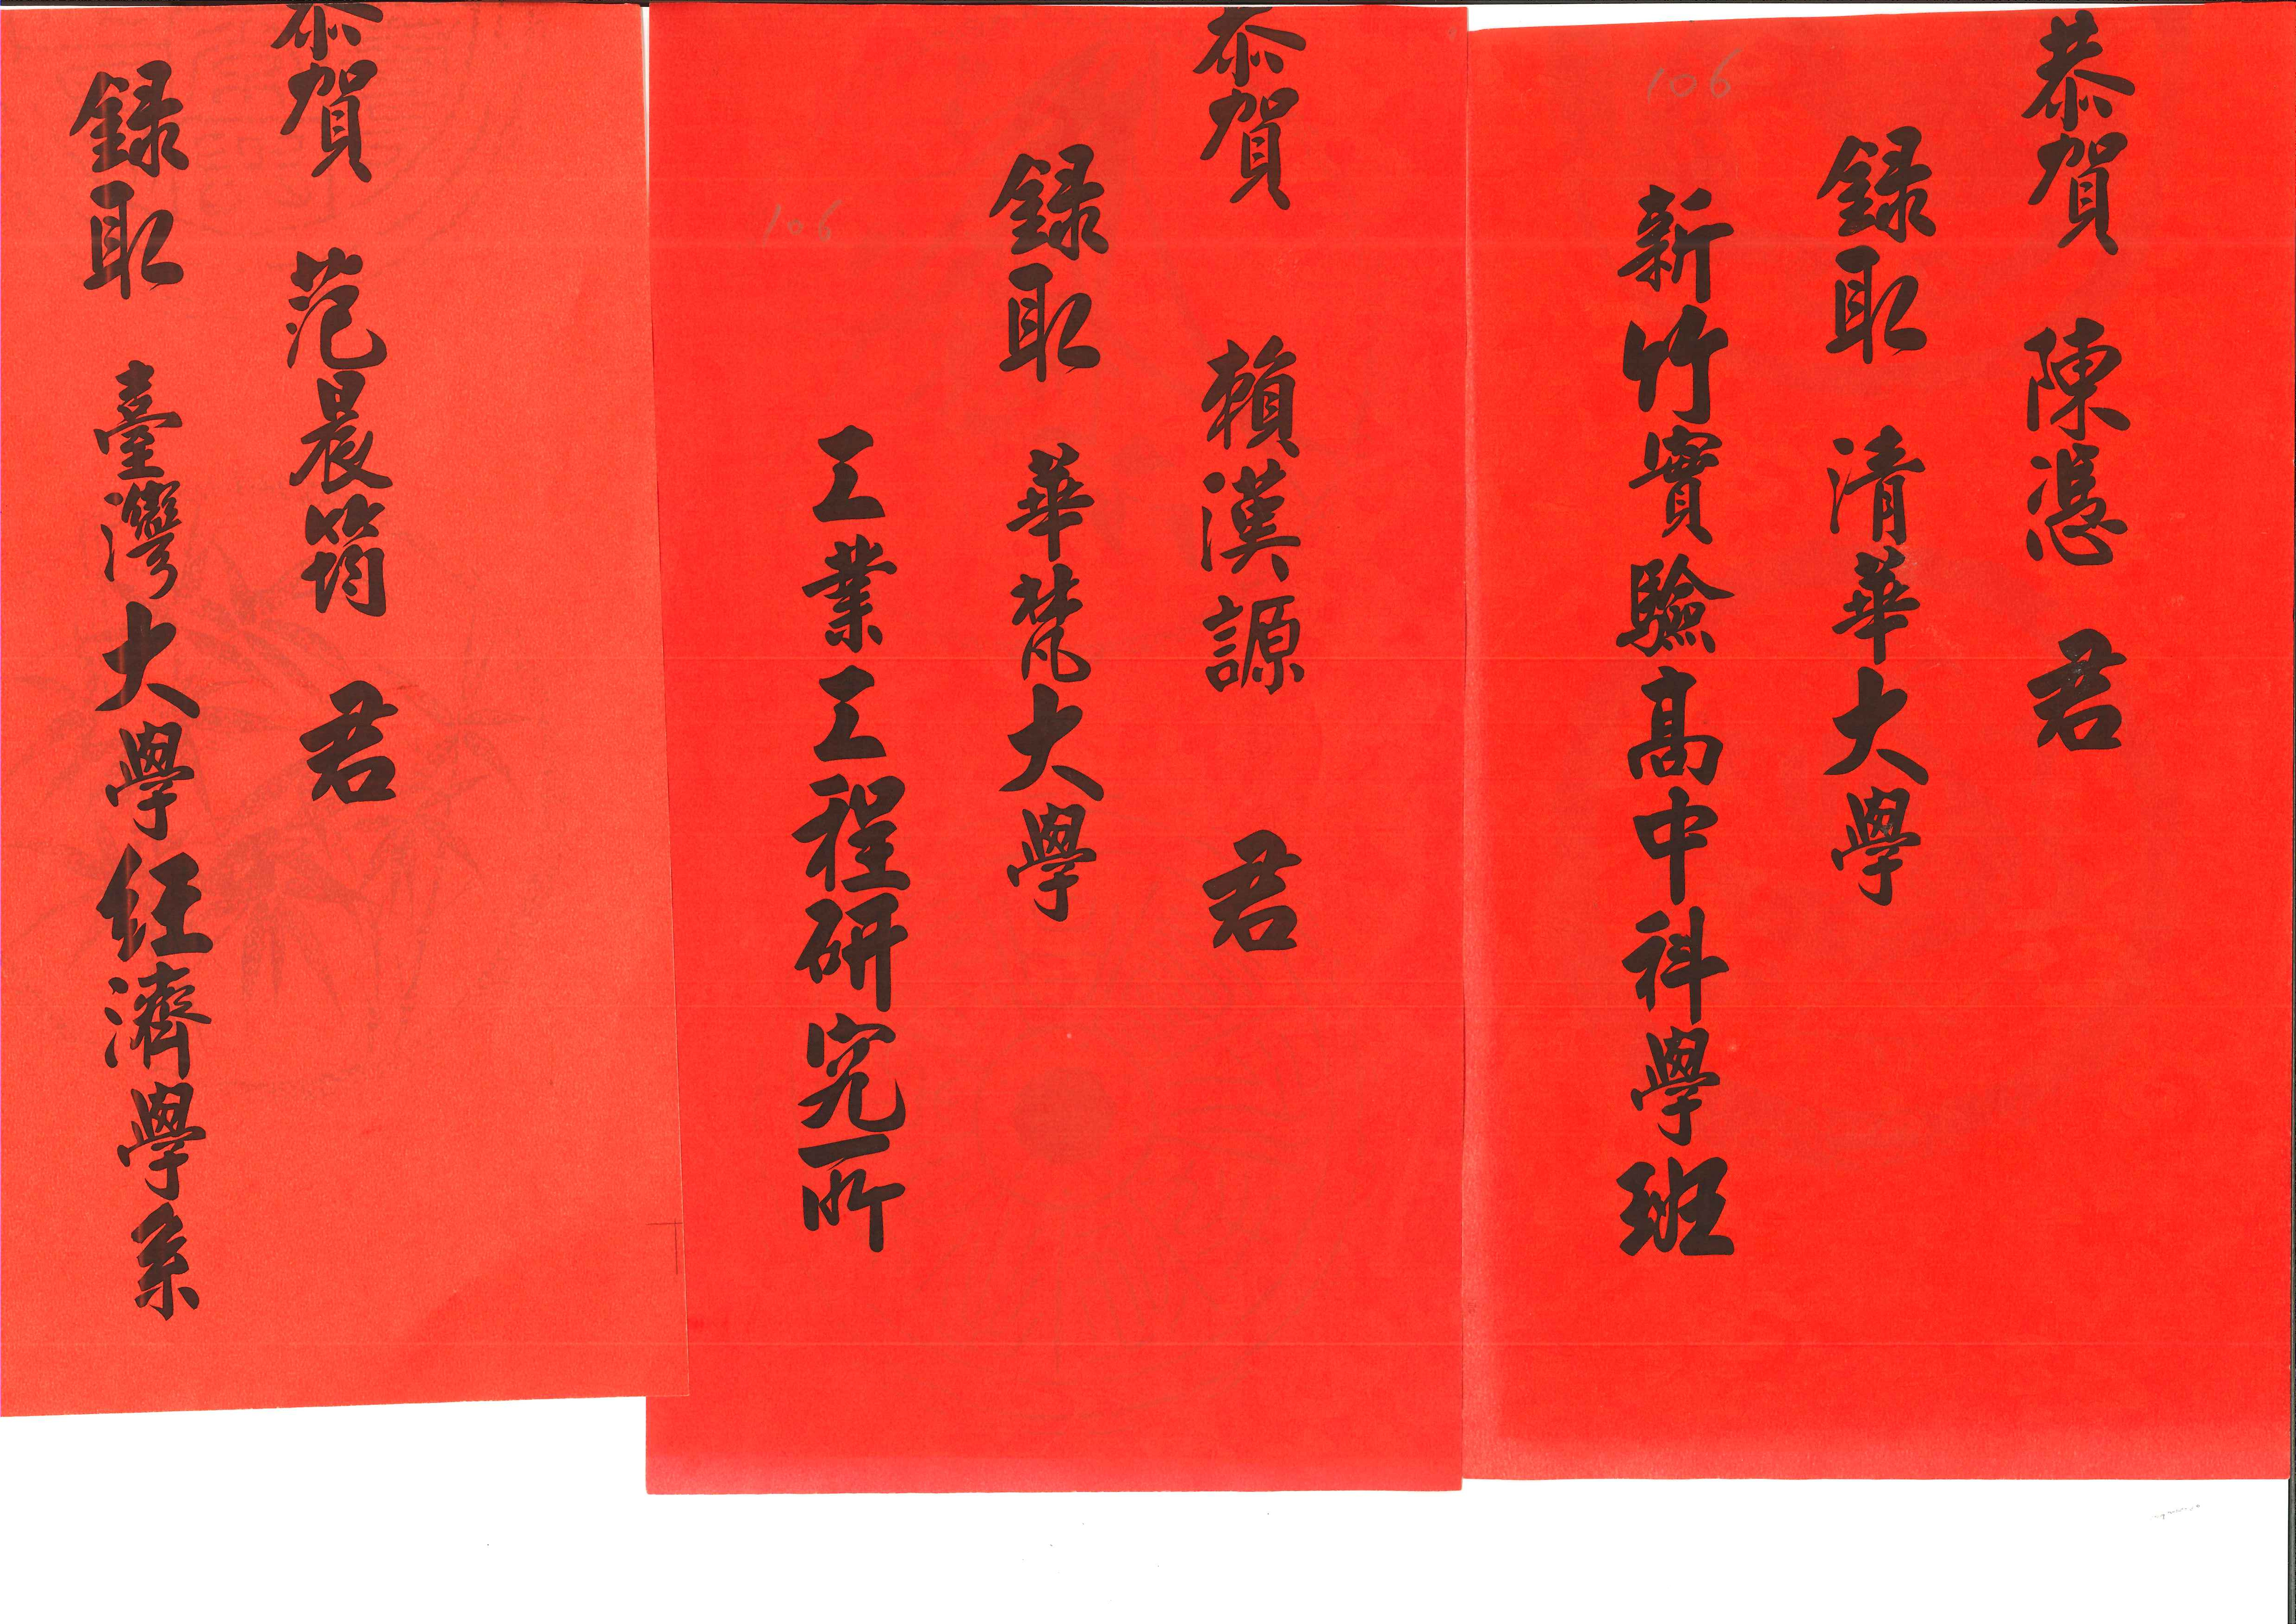 106
恭賀 陳憑 君
錄取 清華大學
新竹實驗高中科學班
106
恭賀 賴漢謜 君
錄取 華梵大學
工業工程研究所
恭賀 范晨筠 君
錄取 臺灣大學經濟學系